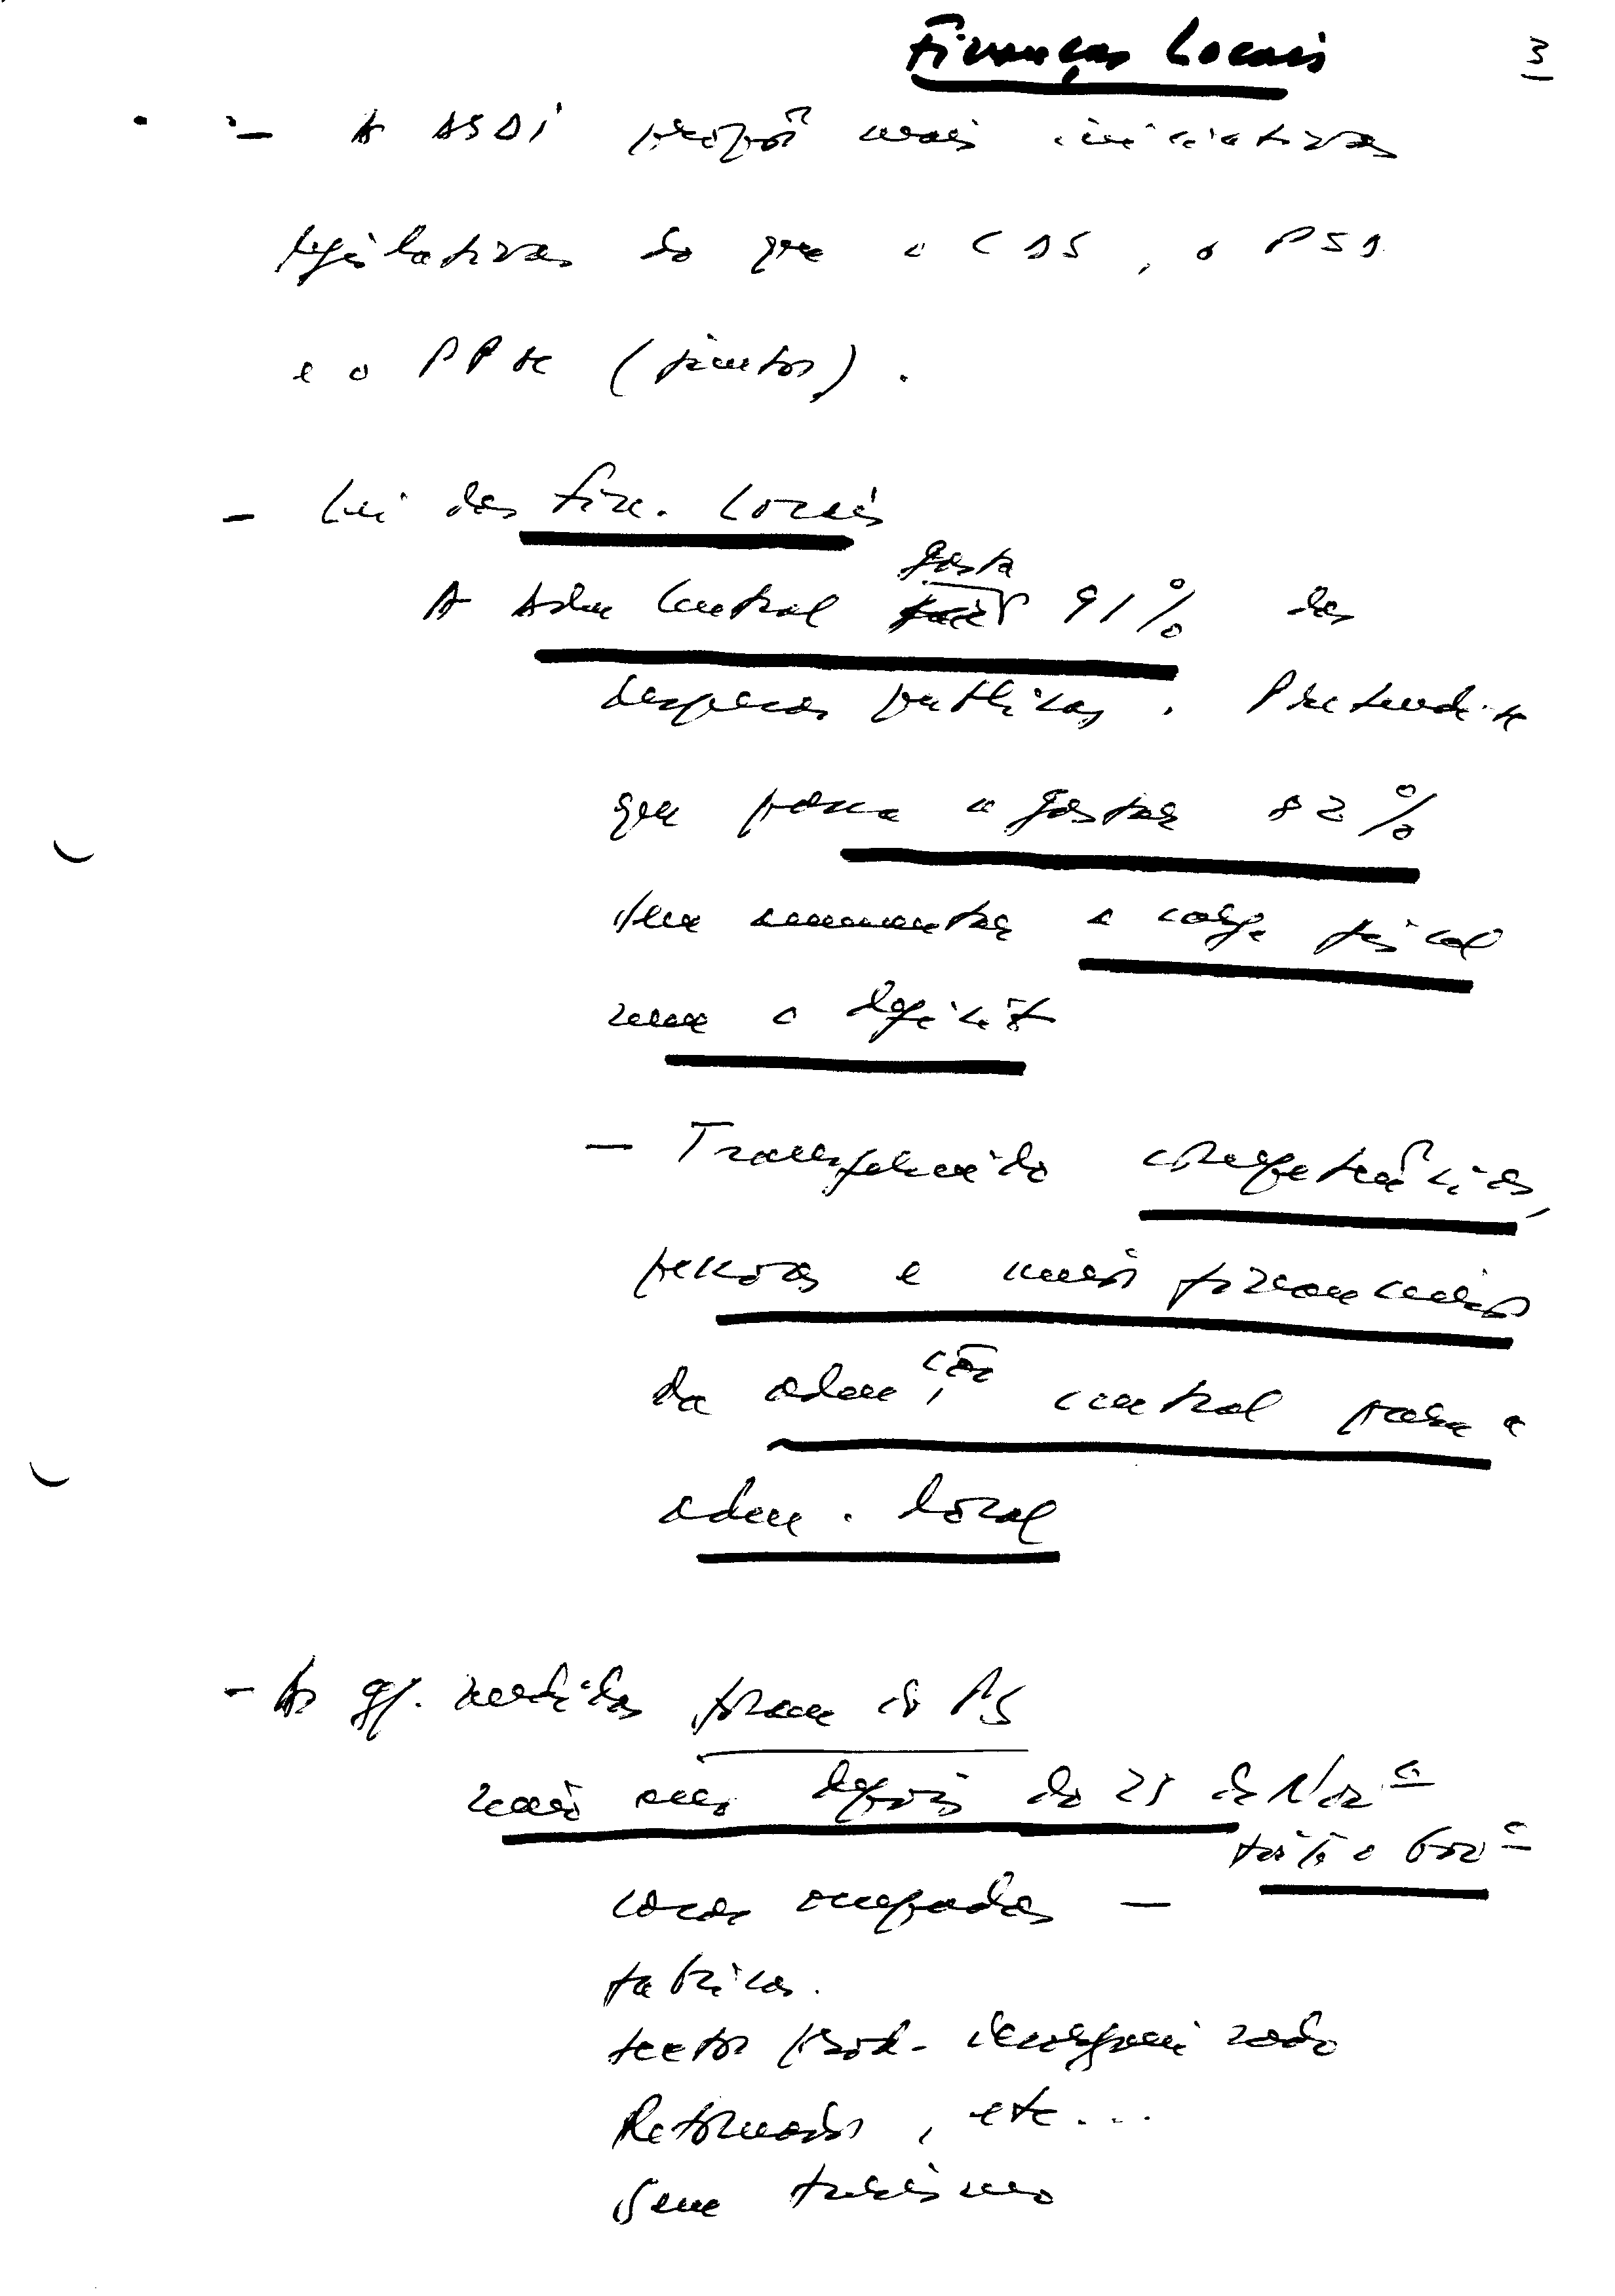 Finanças Locais 3
- A ASDI propôs mais iniciativas
legislativas do que o CDS, o PSD
e o PPM (juntos).
- Lei das Fin. Locais
gasta
A Adm Central 91% das
despesas públicas. Pretende-se
que passe a gastar 82%
sem aumentar a carga fiscal
nem o deficit
- Transferindo competências,
pessoas e meios financeiros
da adm.ção central para a
adm. local
- As gr. medidas foram do PS
mas depois do 25 de Nov.º
o Gov.º
casas ocupadas -
fabricas.
sector prod. desorganizado
Retornados, etc...
Sem turismo